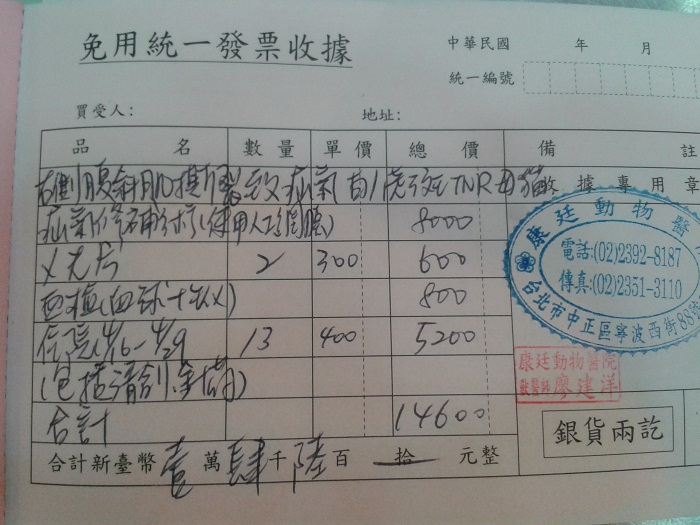 免用統一發票收據
中華民國 年 月
統一編號
買受人: 地址:
品 名 數量 單價 總價 備 註
右側腹斜肌撕裂致疝氣 虎斑TNR母貓 收據專用章
疝氣修補手術(使用人工網膜) 8000
X光片 2 300 600
血檢(血球+生化) 800
住院4/16-4/29 13 400 5200
(包括清創、 )
合計 14600
合計新臺幣 壹 萬 肆 千 陸 百 拾 元整
康廷動物醫
電話:(02)2392-8187
傳真:(02)2351-3110
台北市中正區寧波西街88
康廷動物醫院
獸醫師 廖建洋
銀貨兩訖